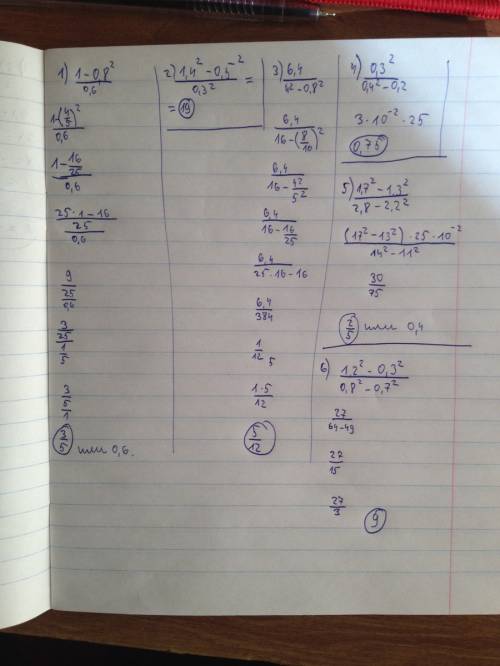 1) (1 - 0,8²)/0,6
(1 - (4/5)²)/0,6
(1 - 16/25)/0,6
((25·1 - 16)/25)/0,6
(9/25)/0,6
(3/25)/(1/5)
(3/5)/1
3/5 или 0,6.
2) (1,4² - 0,5²)/0,3² =
= 19
3) 6,4/(4² - 0,8²)
6,4/(16 - (8/10)²)
6,4/(16 - 4²/5²)
6,4/(16 - 16/25)
6,4/(25·16 - 16)
6,4/384
1/12 5
(1·5)/12
5/12
4) 0,3²/(0,4² - 0,2)
3·10⁻²·25
0,75
5) (1,7² - 1,3²)/(2,8 - 2,2²)
((17² - 13²)·25·10⁻²)/(14² - 11²)
30/75
2/5 или 0,4
6) (1,2² - 0,3²)/(0,8² - 0,7²)
27/(64-49)
27/15
27/3
9